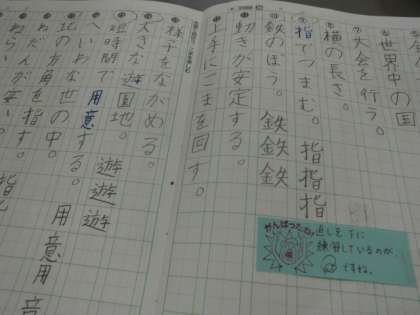 世界中の国
大会を行う。
横の長さ。
指でつまむ。 指指指
鉄のぼう。 鉄鉄鉄
動きが安定する。
上手にこまを回す。
直しを下に
練習しているのが、
ですね。
様子をながめる。
大きな遊園地。 遊遊遊
短時間で用意する。 用意用意
へいわな世の中。
北の方角を指す。
ねだんが安い。 指